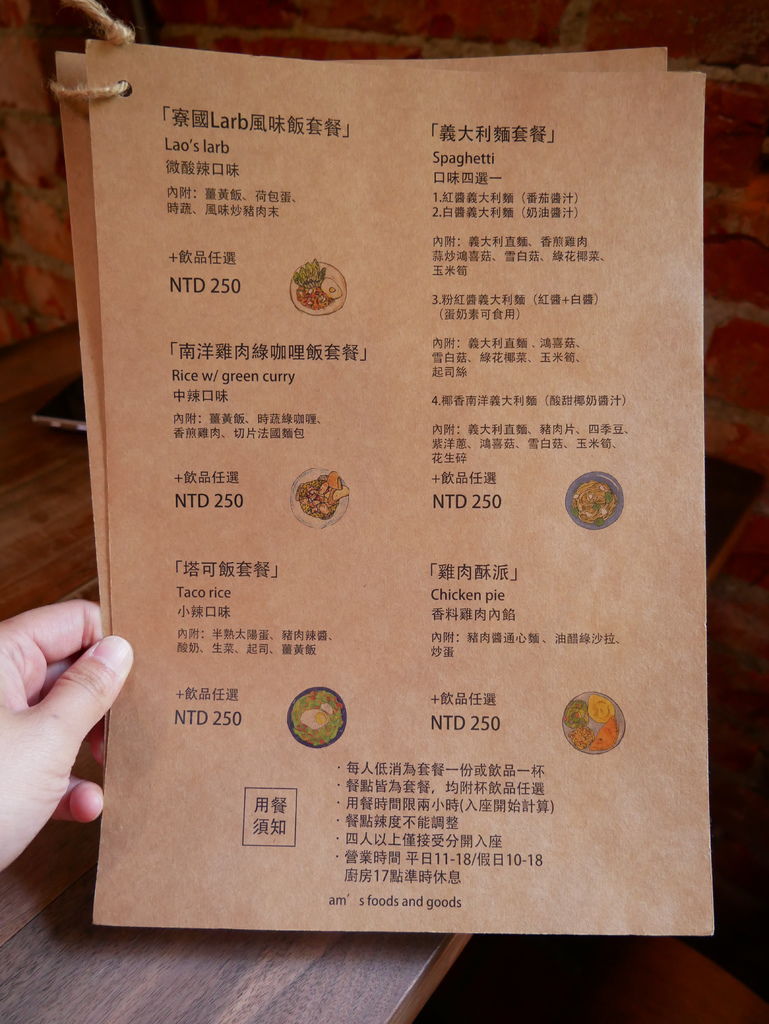 「寮國Larb風味飯套餐」
Lao's larb
微酸辣口味
內附：薑黃飯、荷包蛋、
時蔬、風味炒豬肉末
+飲品任選
NTD 250
「南洋雞肉綠咖哩飯套餐」
Rice w/ green curry
中辣口味
內附：薑黃飯、時蔬綠咖哩、
香煎雞肉、切片法國麵包
+飲品任選
NTD 250
「塔可飯套餐」
Taco rice
小辣口味
內附：半熟太陽蛋、豬肉辣醬、
酸奶、生菜、起司、薑黃飯
+飲品任選
NTD 250
「義大利麵套餐」
Spaghetti
口味四選一
1.紅醬義大利麵（番茄醬汁）
2.白醬義大利麵（奶油醬汁）
內附：義大利直麵、香煎雞肉
蒜炒鴻喜菇、雪白菇、綠花椰菜、
玉米筍
3.粉紅醬義大利麵（紅醬+白醬）
（蛋奶素可食用）
內附：義大利直麵、鴻喜菇、
雪白菇、綠花椰菜、玉米筍、
起司絲
4.椰香南洋義大利麵（酸甜椰奶醬汁）
內附：義大利直麵、豬肉片、四季豆、
紫洋蔥、鴻喜菇、雪白菇、玉米筍、
花生碎
+飲品任選
NTD 250
「雞肉酥派」
Chicken pie
香料雞肉內餡
內附：豬肉醬通心麵、油醋綠沙拉、
炒蛋
+飲品任選
NTD 250
用餐
須知
·每人低消為套餐一份或飲品一杯
·餐點皆為套餐，均附杯飲品任選
·用餐時間限兩小時(入座開始計算)
·餐點辣度不能調整
·四人以上僅接受分開入座
·營業時間 平日11-18/假日10-18
廚房17點準時休息
am's foods and goods